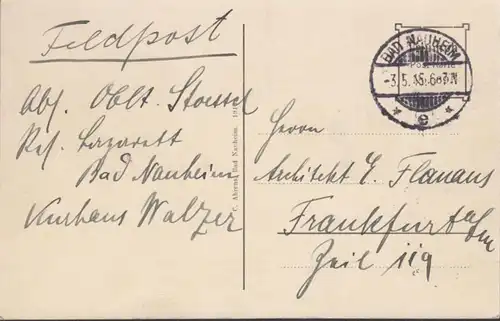 Feldpost
Abs. Oblt. Stoessel
Res. Lazarett
Bad Nauheim
Kurhaus Walzer
BAD NAUHEIM
-3.5.15. 6-7 N
* e *
Postkarte
Herrn
Architekt E.
Frankfurt a/m
Zeil 119
Bad Nauheim.